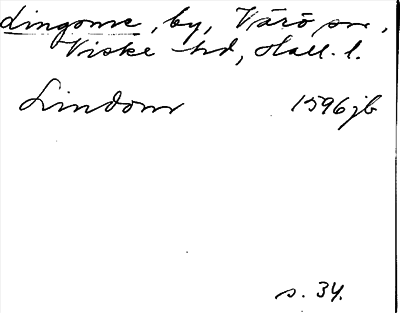 Lingome, by, Värö sn,
Viske hd, Hall. l.
Lindom 1596 jb
s. 34.